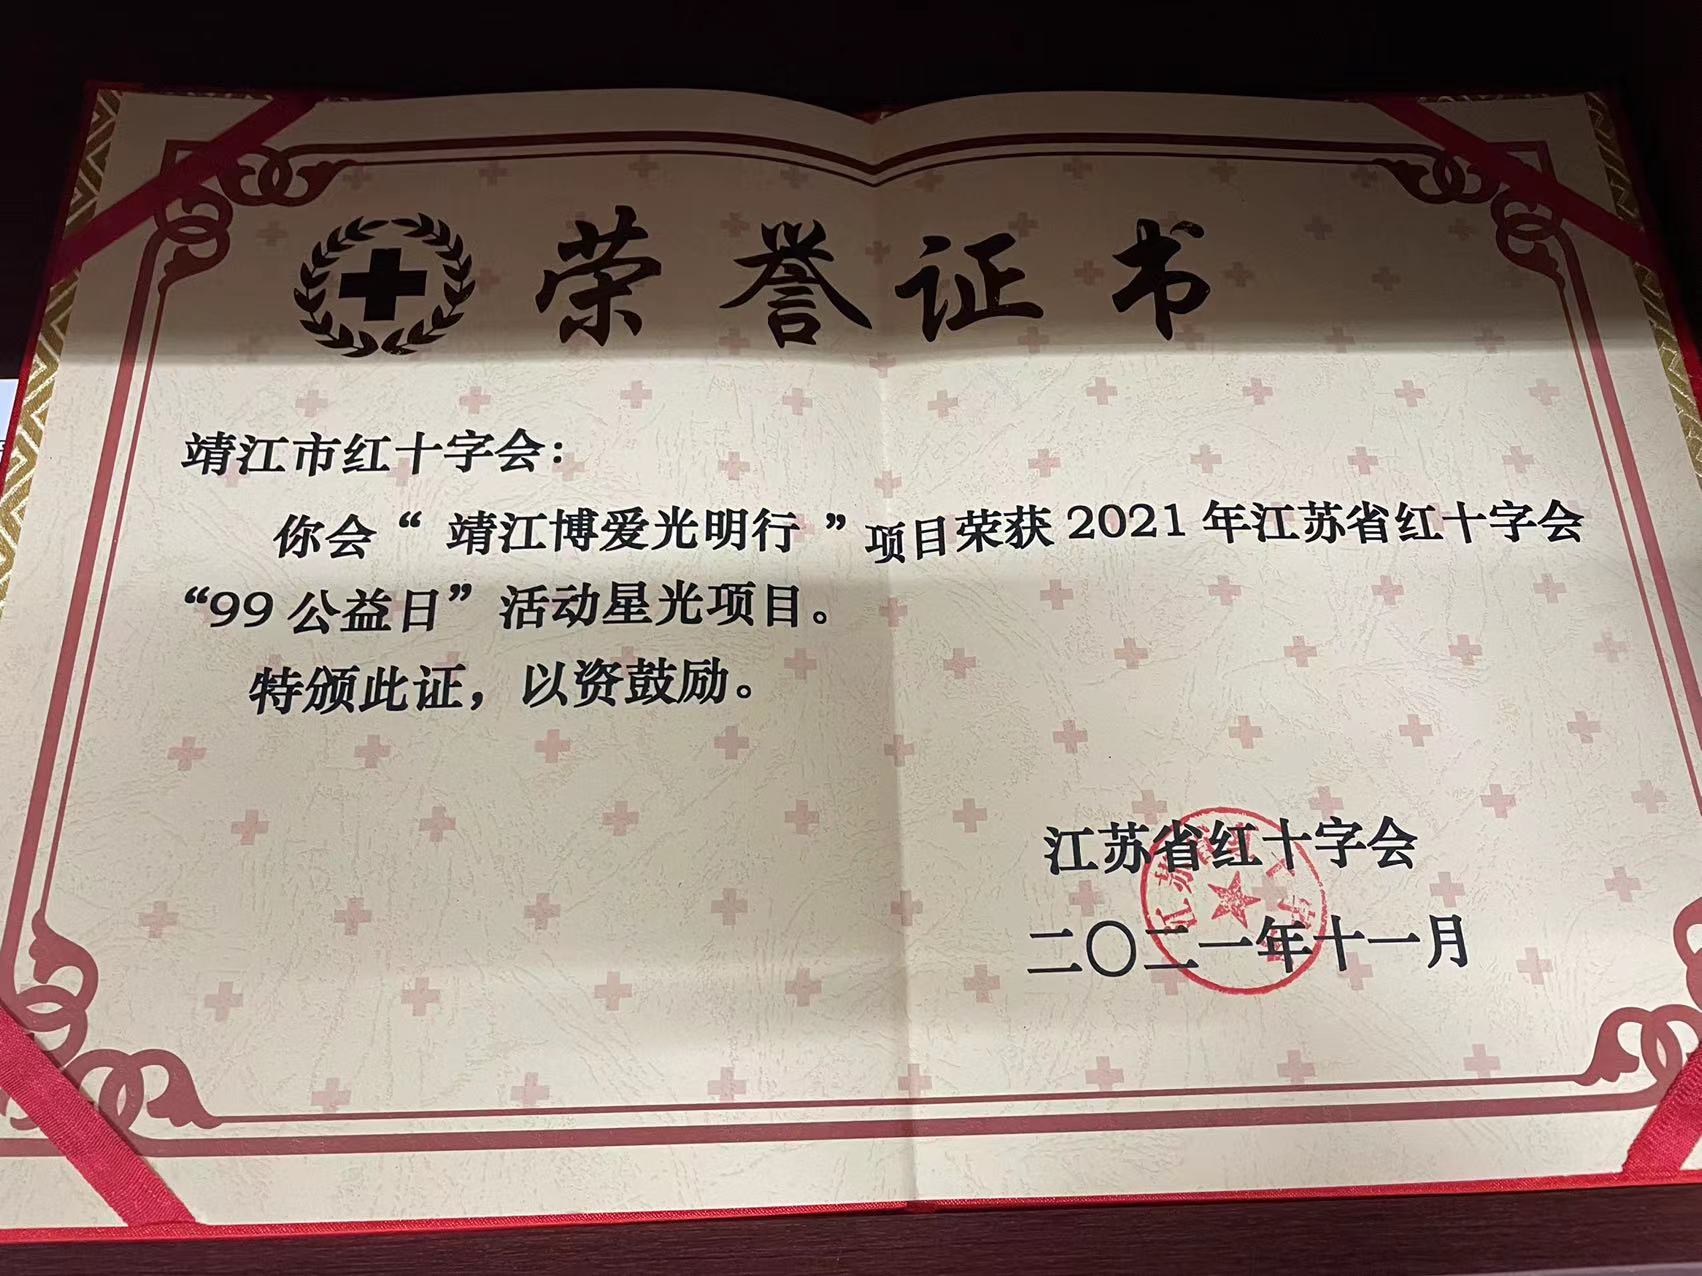 荣誉证书
靖江市红十字会：
你会“靖江博爱光明行”项目荣获2021年江苏省红十字会
“99公益日”活动星光项目。
特颁此证，以资鼓励。
江苏省红十字会
二〇二一年十一月
江苏省红十字会